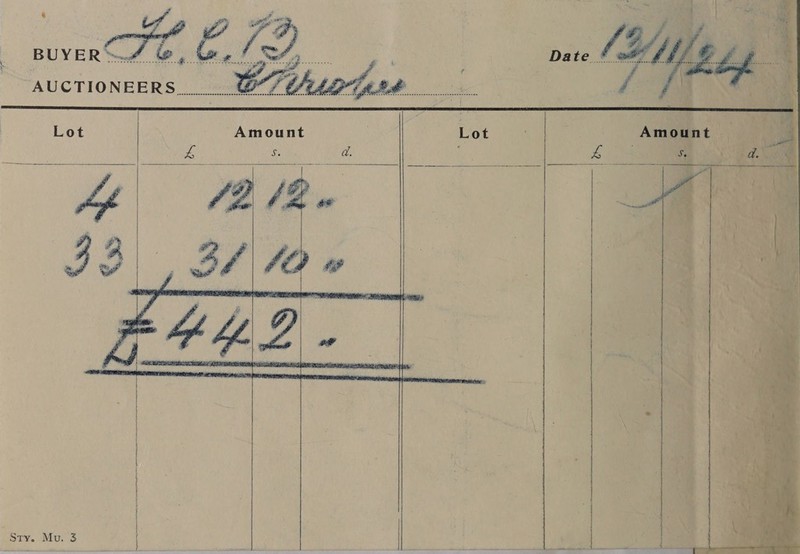 BUYER H. C. B.
Date 13/11/24
AUCTIONEERS Christies
Lot Amount Lot Amount
£ s. d. £ s. d.
4 12 12 "
33 31 10 "
£ 44 2 "
STY. MU. 3